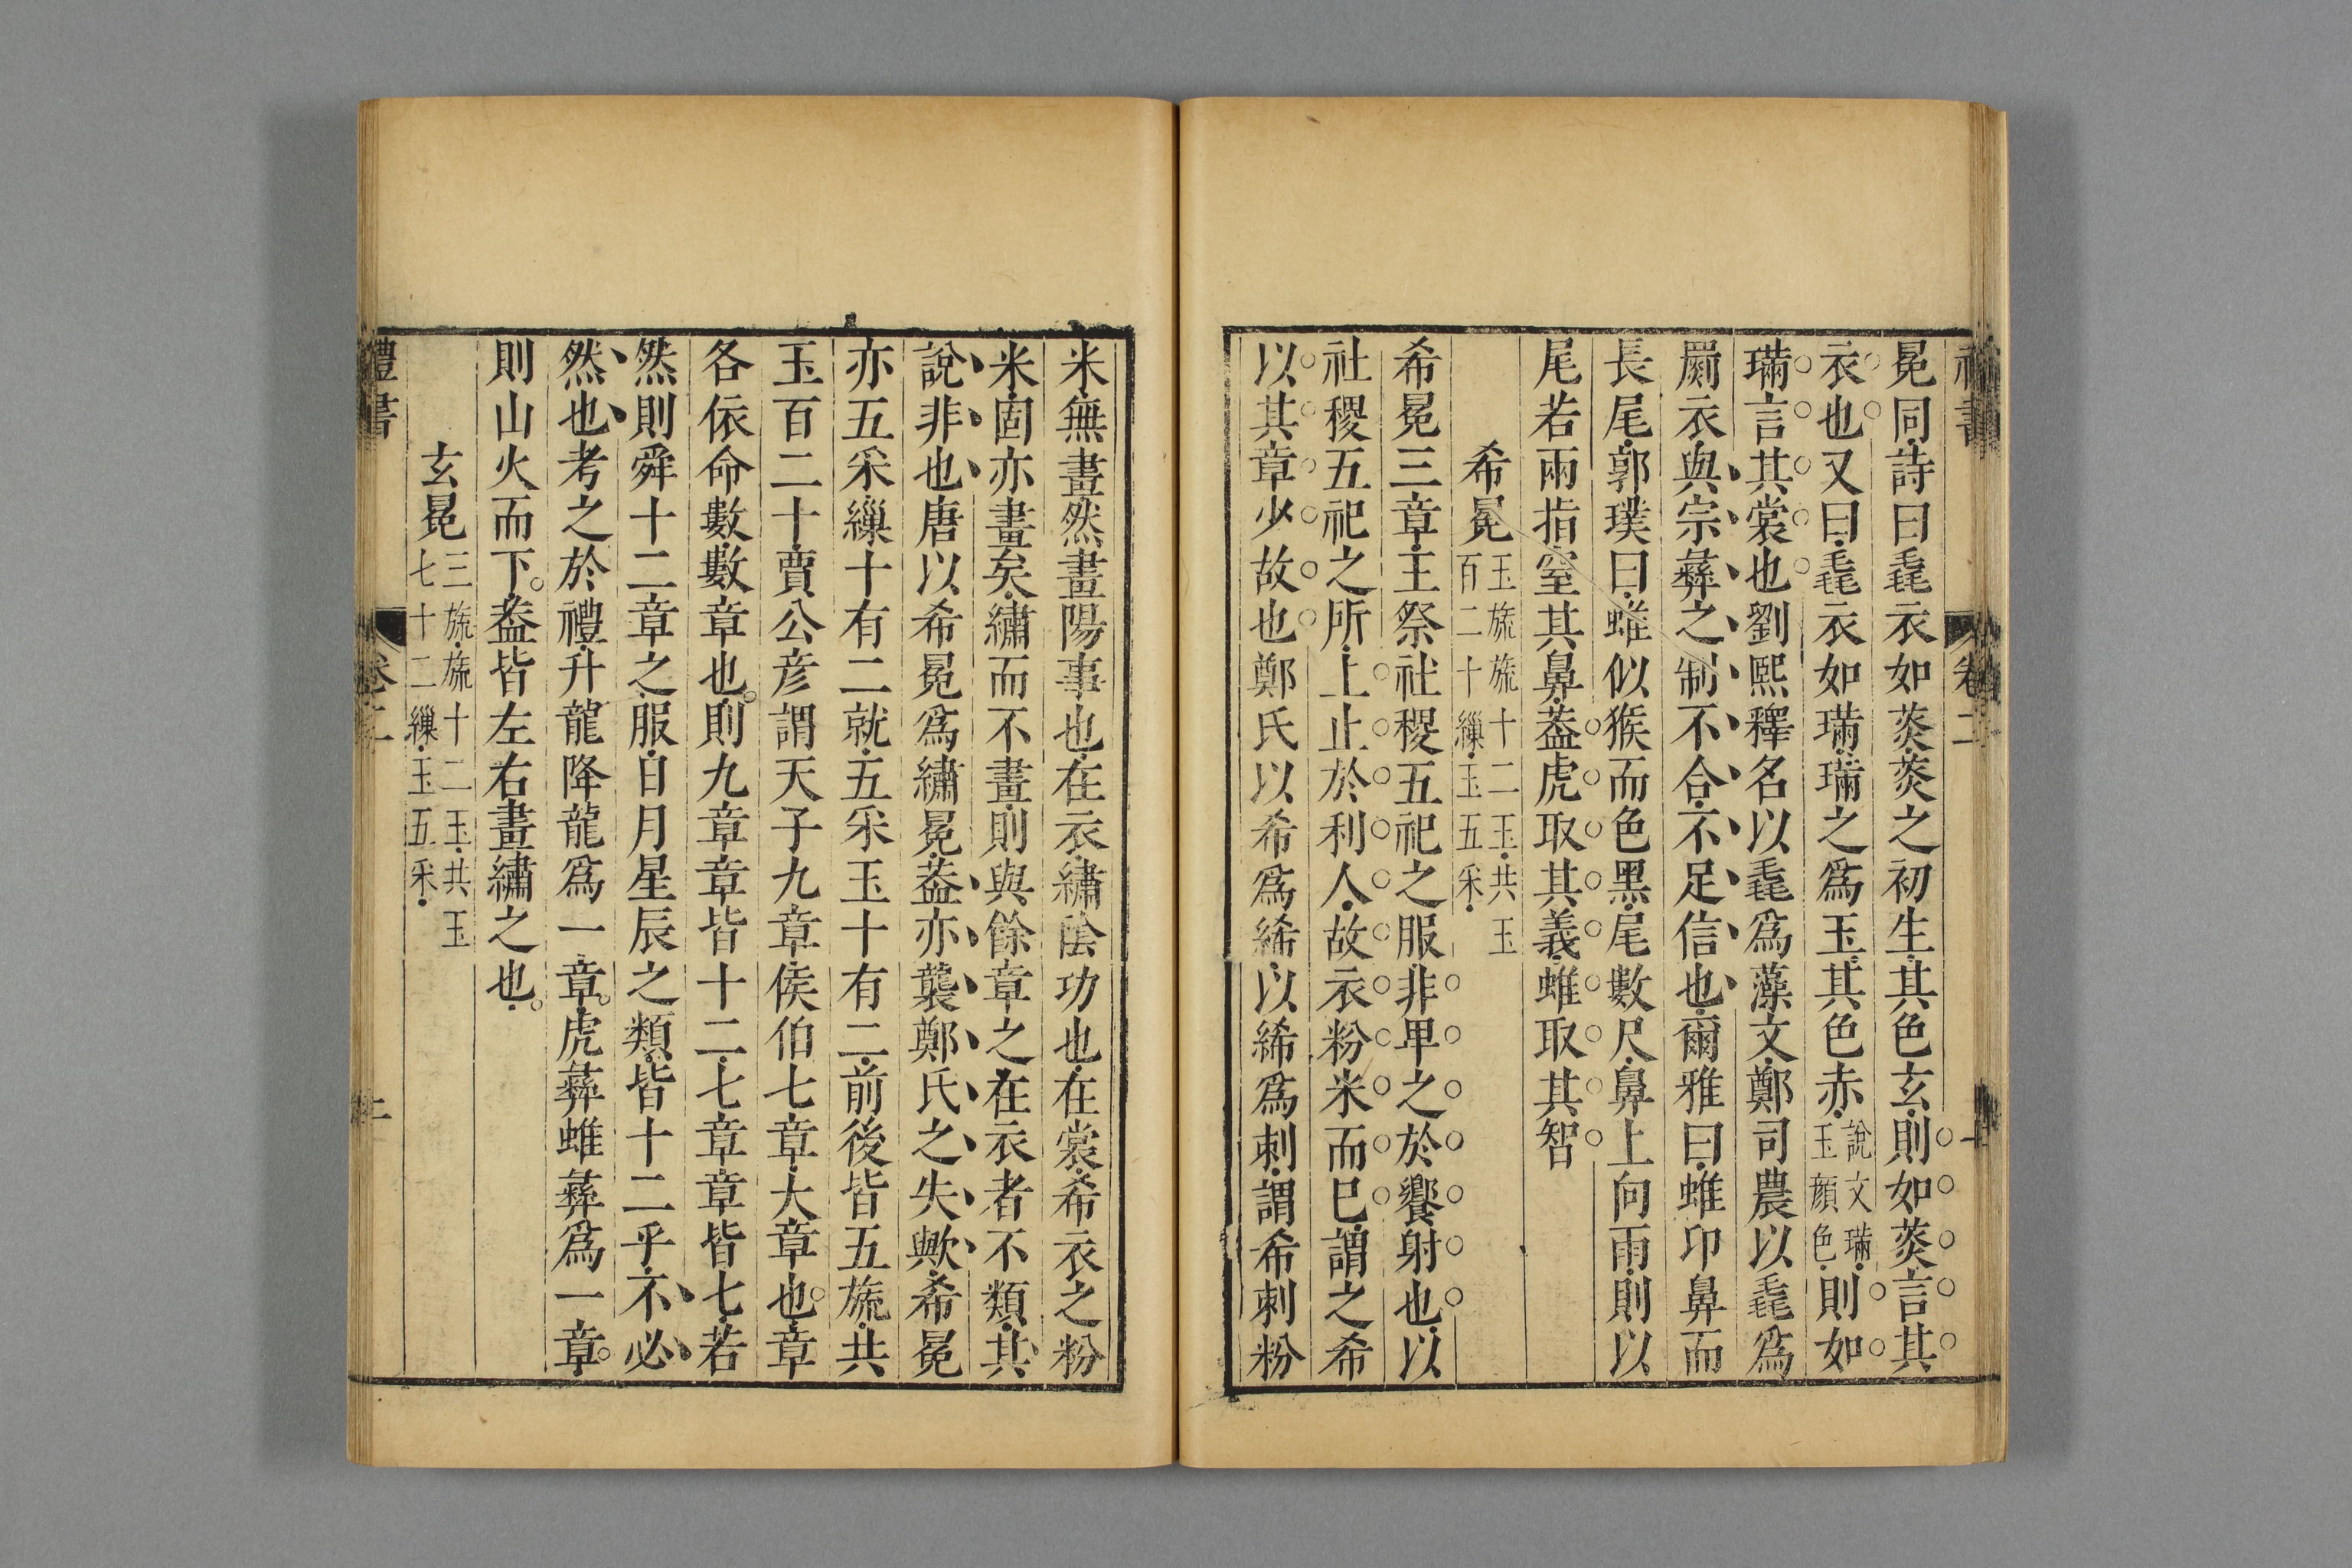 禮書
卷二
冕同詩曰毳衣如菼菼之初生其色玄則如菼言其
衣也又曰毳衣如璊璊之為玉其色赤說文璊玉顏色則如
璊言其裳也劉熙釋名以毳爲藻文鄭司農以毳爲
罽衣與宗彝之制不合不足信也爾雅曰蜼卬鼻而
長尾郭璞曰蜼似猴而色黑尾數尺鼻上向雨則以
尾若兩指窒其鼻葢虎取其義蜼取其智
希冕玉旒旒十二玉共玉百二十繅玉五采
希冕三章王祭社稷五祀之服非卑之於饗射也以
社稷五祀之所上止於利人故衣粉米而已謂之希
以其章少故也鄭氏以希爲絺以絺爲刺謂希刺粉
米無畫然畫陽事也在衣繡陰功也在裳希衣之粉
米固亦畫矣繡而不畫則與餘章之在衣者不類其
說非也唐以希冕爲繡冕葢亦襲鄭氏之失歟希冕
亦五采繅十有二就五采玉十有二前後皆五旒共
玉百二十賈公彥謂天子九章侯伯七章大章也章
各依命數數章也則九章章皆十二七章章皆七若
然則舜十二章之服日月星辰之類皆十二乎不必
然也考之於禮升龍降龍爲一章虎彝蜼彝爲一章
則山火而下葢皆左右畫繡之也
玄冕三旒旒十二玉共玉七十二繅玉五采
禮書
卷二